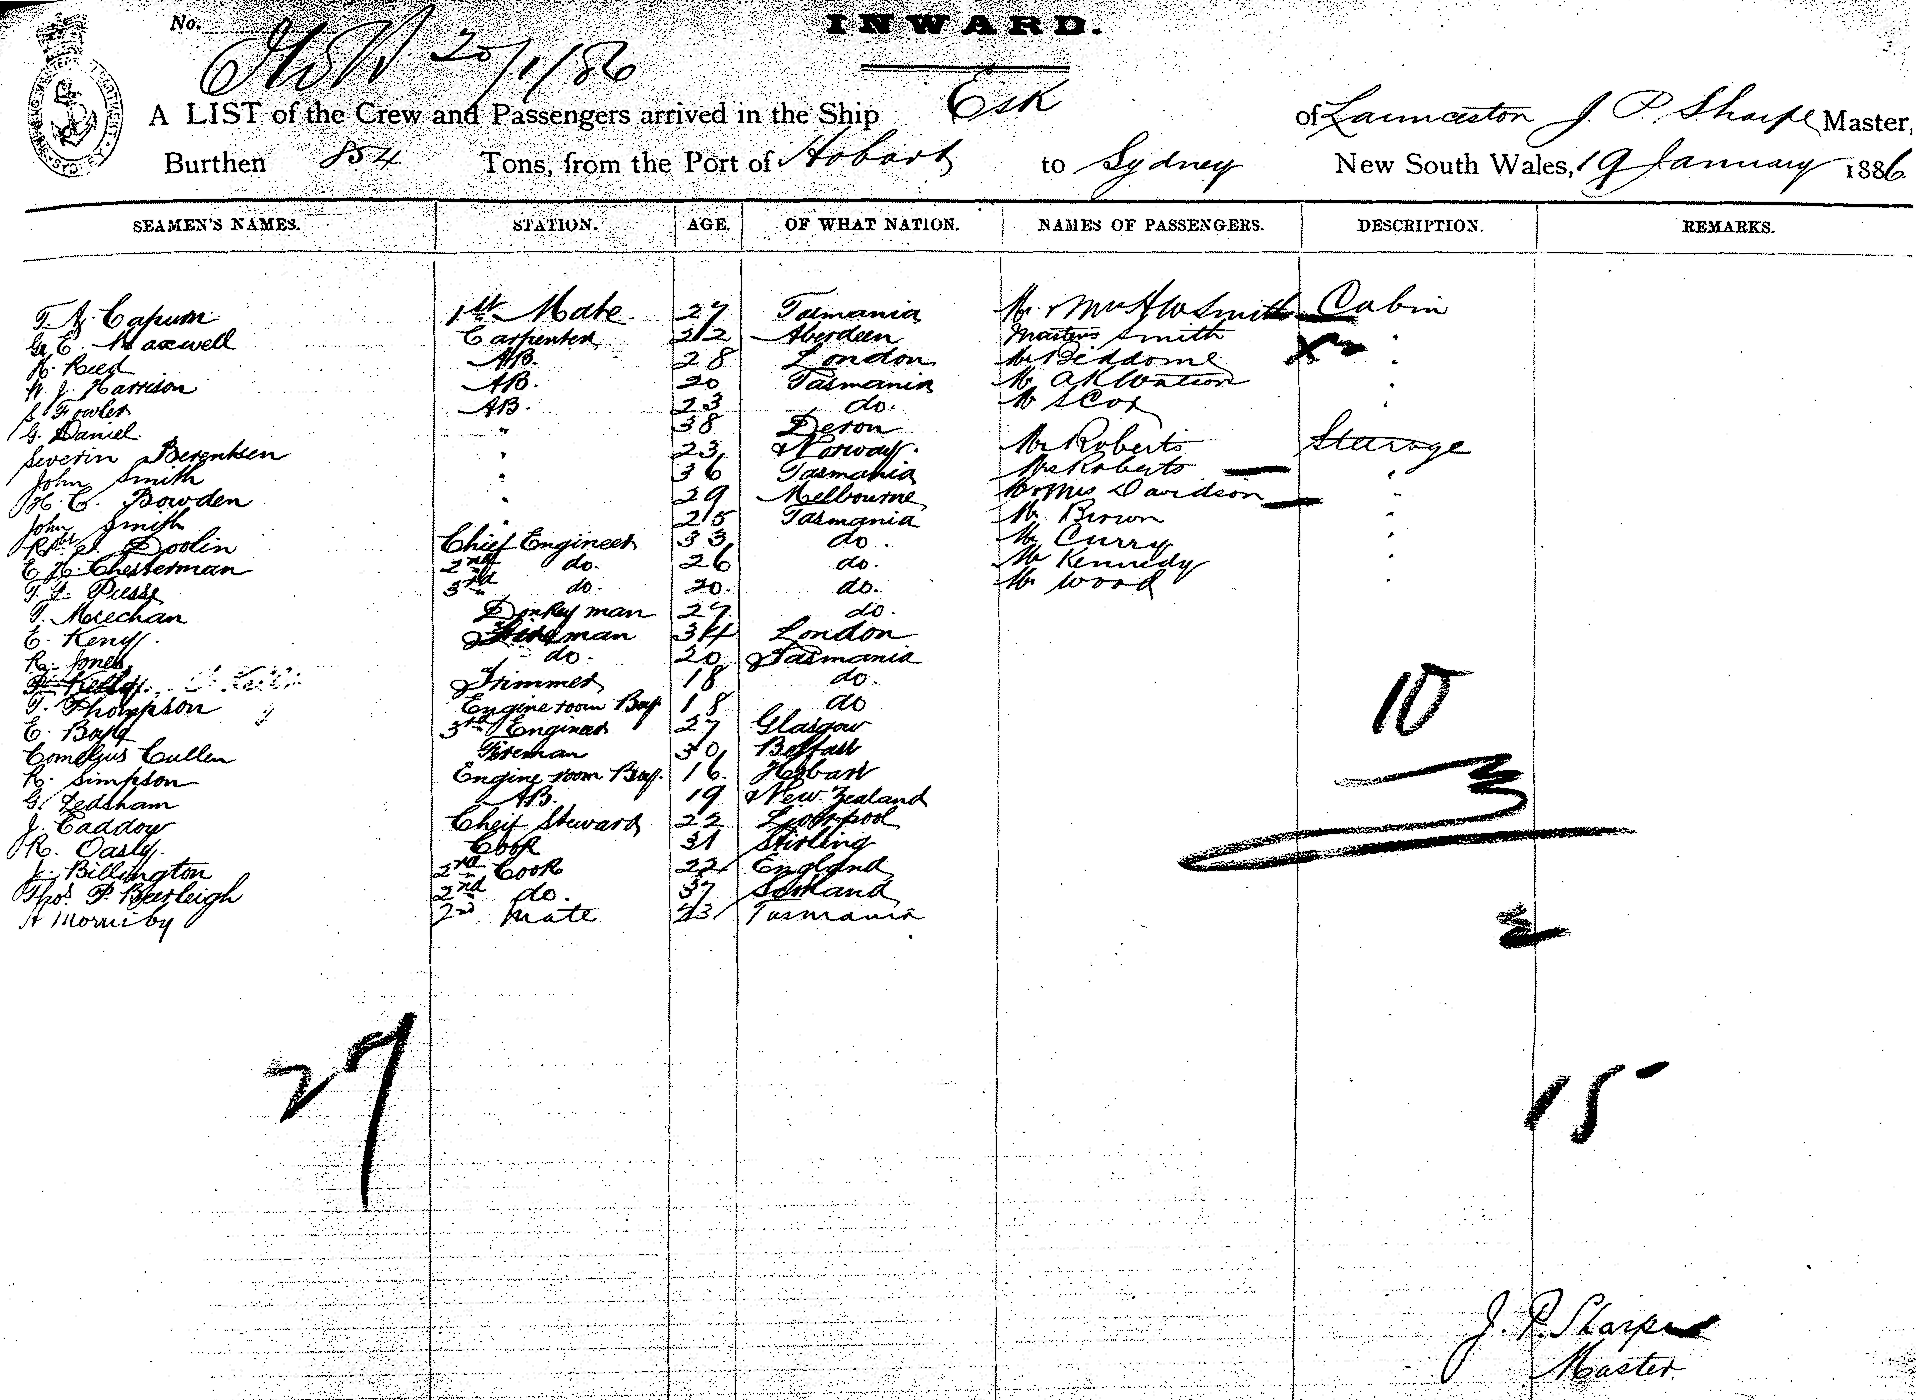 No.
INWARD.
20/1/86
A LIST of the Crew and Passengers arrived in the Ship Esk of Launceston J. P. Sharpe Master,
Burthen 854 Tons, from the Port of Hobart to Sydney New South Wales, 19 January 1886
SEAMEN'S NAMES. STATION. AGE. OF WHAT NATION. NAMES OF PASSENGERS. DESCRIPTION. REMARKS.
1st Mate 27 Tasmania Mr & Mrs H W Smith Cabin
G. E. Maxwell Carpenter 32 Aberdeen Masters Smith "
H. Reed AB. 28 London Mr Beddome "
W. J. Harrison AB. 20 Tasmania Mr A K Watson "
S. Fowler AB. 23 do. Mr S Cox "
G. Daniel " 38 Devon
Severin Berentsen " 23 Norway. Mr Roberts Steerage
John Smith " 36 Tasmania Mrs Roberts "
H. C. Bowden " 29 Melbourne Mr & Mrs Davidson "
John Smith " 25 Tasmania Mr Brown "
Rbt. S. Doolin Chief Engineer 33 do. Mr Curry "
E. H. Chesterman 2nd do. 26 do. Mr Kennedy "
T. F. Piesse 3rd do. 20 do. Mr Wood "
T. Meechan Donkey man 27 do.
E. Keny. Fireman 34 London
R. Jones do. 20 Tasmania
P. Kelly Trimmer 18 do.
T. Thompson Engine room Boy 18 do
E. 3rd Engineer 27 Glasgow
Cornelius Cullen Fireman 30 Belfast
R. Simpson Engine room Boy. 16 Hobart
G. Ledsham AB. 19 New Zealand
J. Caddow Cheif Steward 22 Liverpool
R. Oasly. Cook 31 Stirling
J. Billington 2nd Cook 22 England
Thos. P. Burleigh 2nd do. 37 Scotland
2nd Mate 23 Tasmania
10
3
2
27
15
J. P. Sharpe
Master.